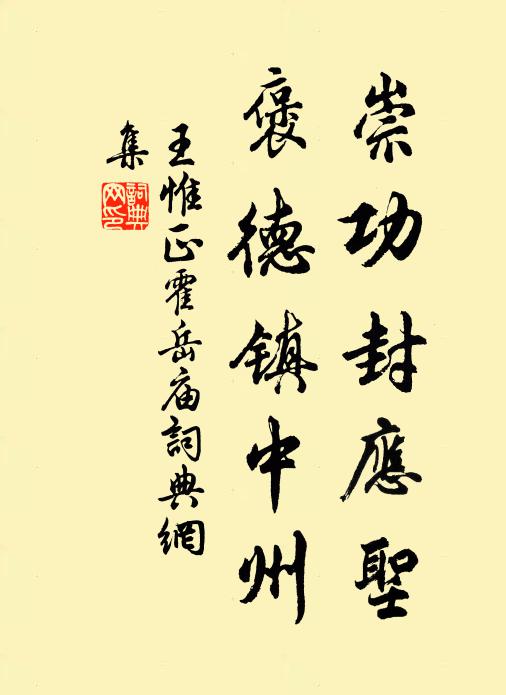 崇功封應聖
褒德鎮中州
王惟正霍岳庙詞典網
集
詞典
网印